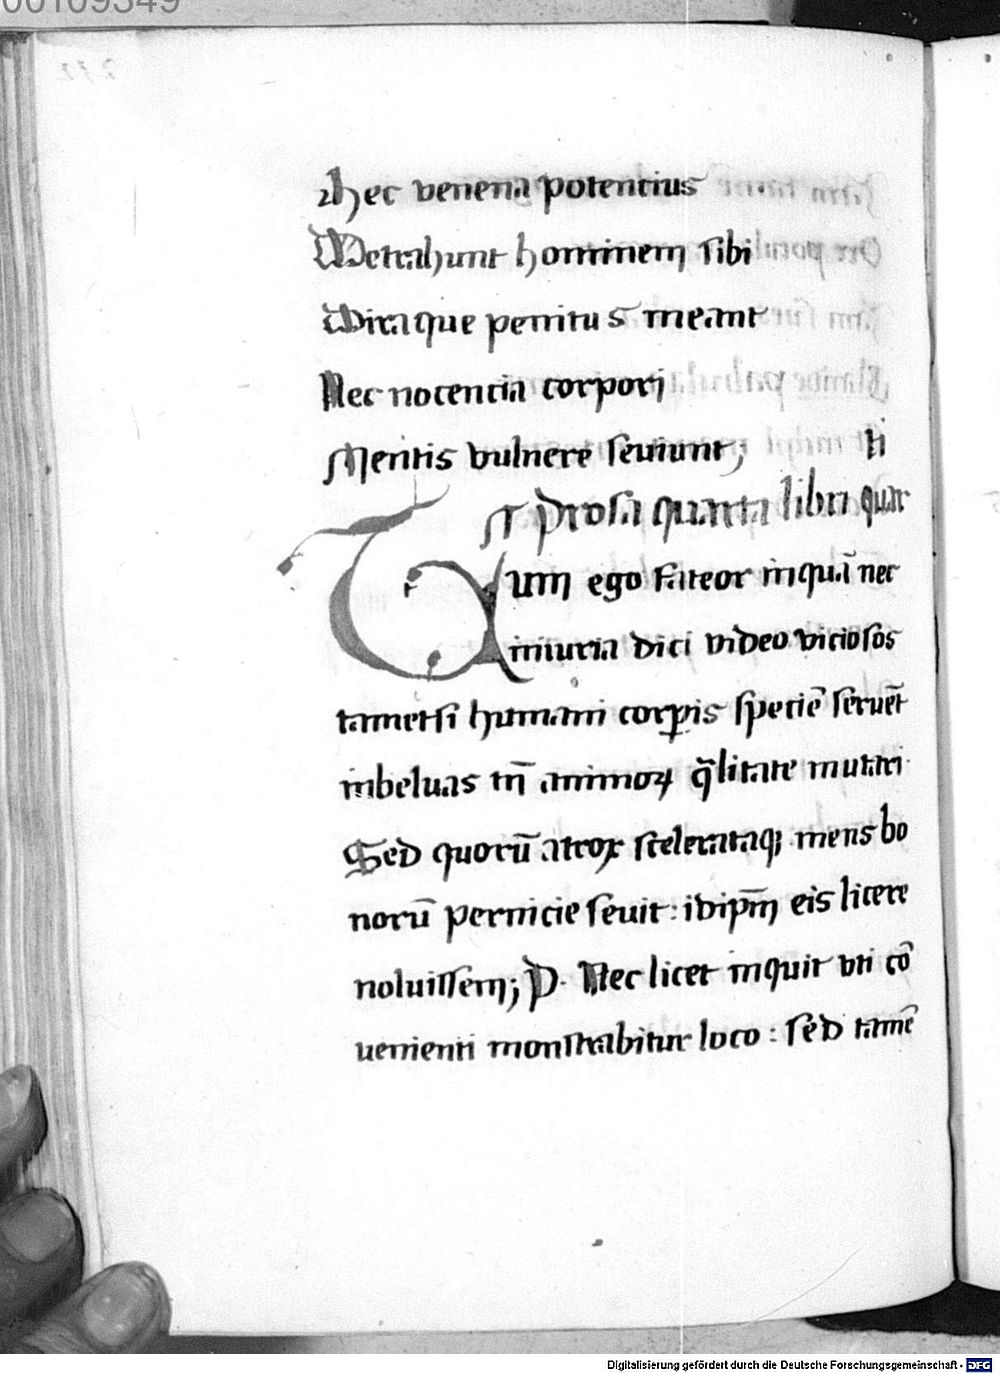 00109349
Hec venena potentius
Detrahunt hominem sibi
Diraque penitus meant
Nec nocencia corpori
Mentis vulnere seuiunt;
ti
prosa quarta libri quar
Tum ego fateor inquā nec
iniuria dici video viciosos
tametsi humani corꝑis speciē seruēt
inbeluas tn̄ animoꝝ q̄litate mutari.
Sed quorū atrox scelerataqꝫ mens bo
norū pernicie seuit: idipm̄ eis licere
noluissem; P. Nec licet inquit vti cō
uenienti monstrabitur loco: sed tamē
Digitalisierung gefördert durch die Deutsche Forschungsgemeinschaft - DFG